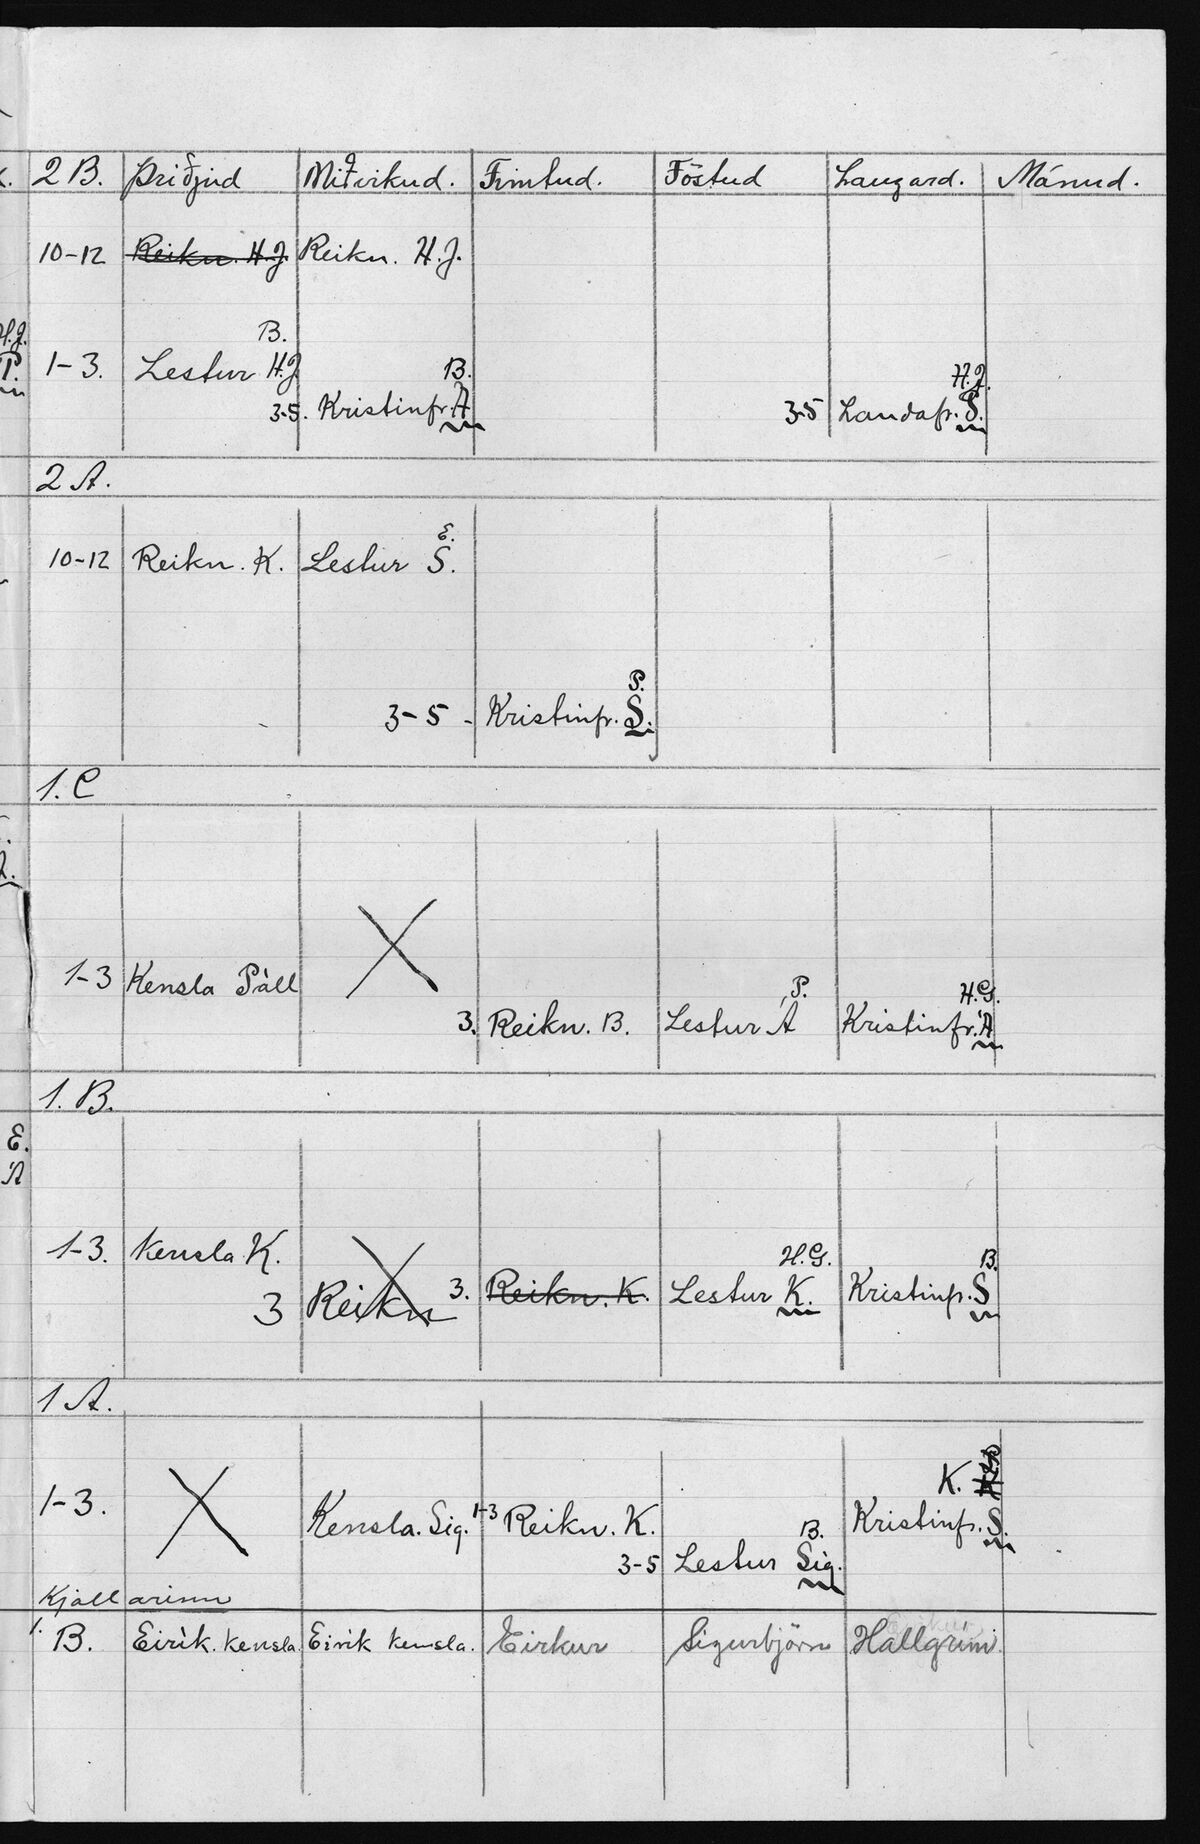 2 B. Þriðjud Miðvikud. Fimtud. Föstud Laugard. Mánud.
10-12 Reikn. H.J. Reikn. H.J.
B.
H.J.
1-3. Lestur H.J. B. H.J.
P.
3-5. Kristinfr. Á 3-5 Landafr. S.
2 A.
E.
10-12 Reikn. K. Lestur S.
P.
3-5 - Kristinfr. S.
1. C
1-3 Kensla Páll
P. H.G.
3. Reikn. B. Lestur Á Kristinfr. Á
1. B.
E.
Á
1-3. Kensla K. H.G. B.
3 Reikn 3. Reikn. K. Lestur K. Kristinfr. S
1 A.
K.
1-3. Kensla. Sig. 1-3 Reikn. K. Kristinfr. S.
B.
3-5 Lestur Sig.
Kjallarinn
1. B. Eirík. kensla Eirík kensla. Eirkur Sigurbjörn Hallgrím.